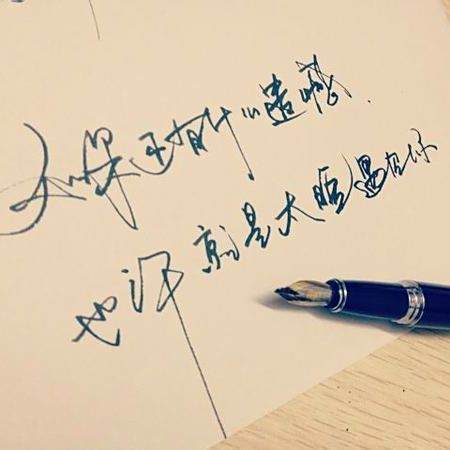 如果还有什么遗憾，
也许就是太晚遇见你